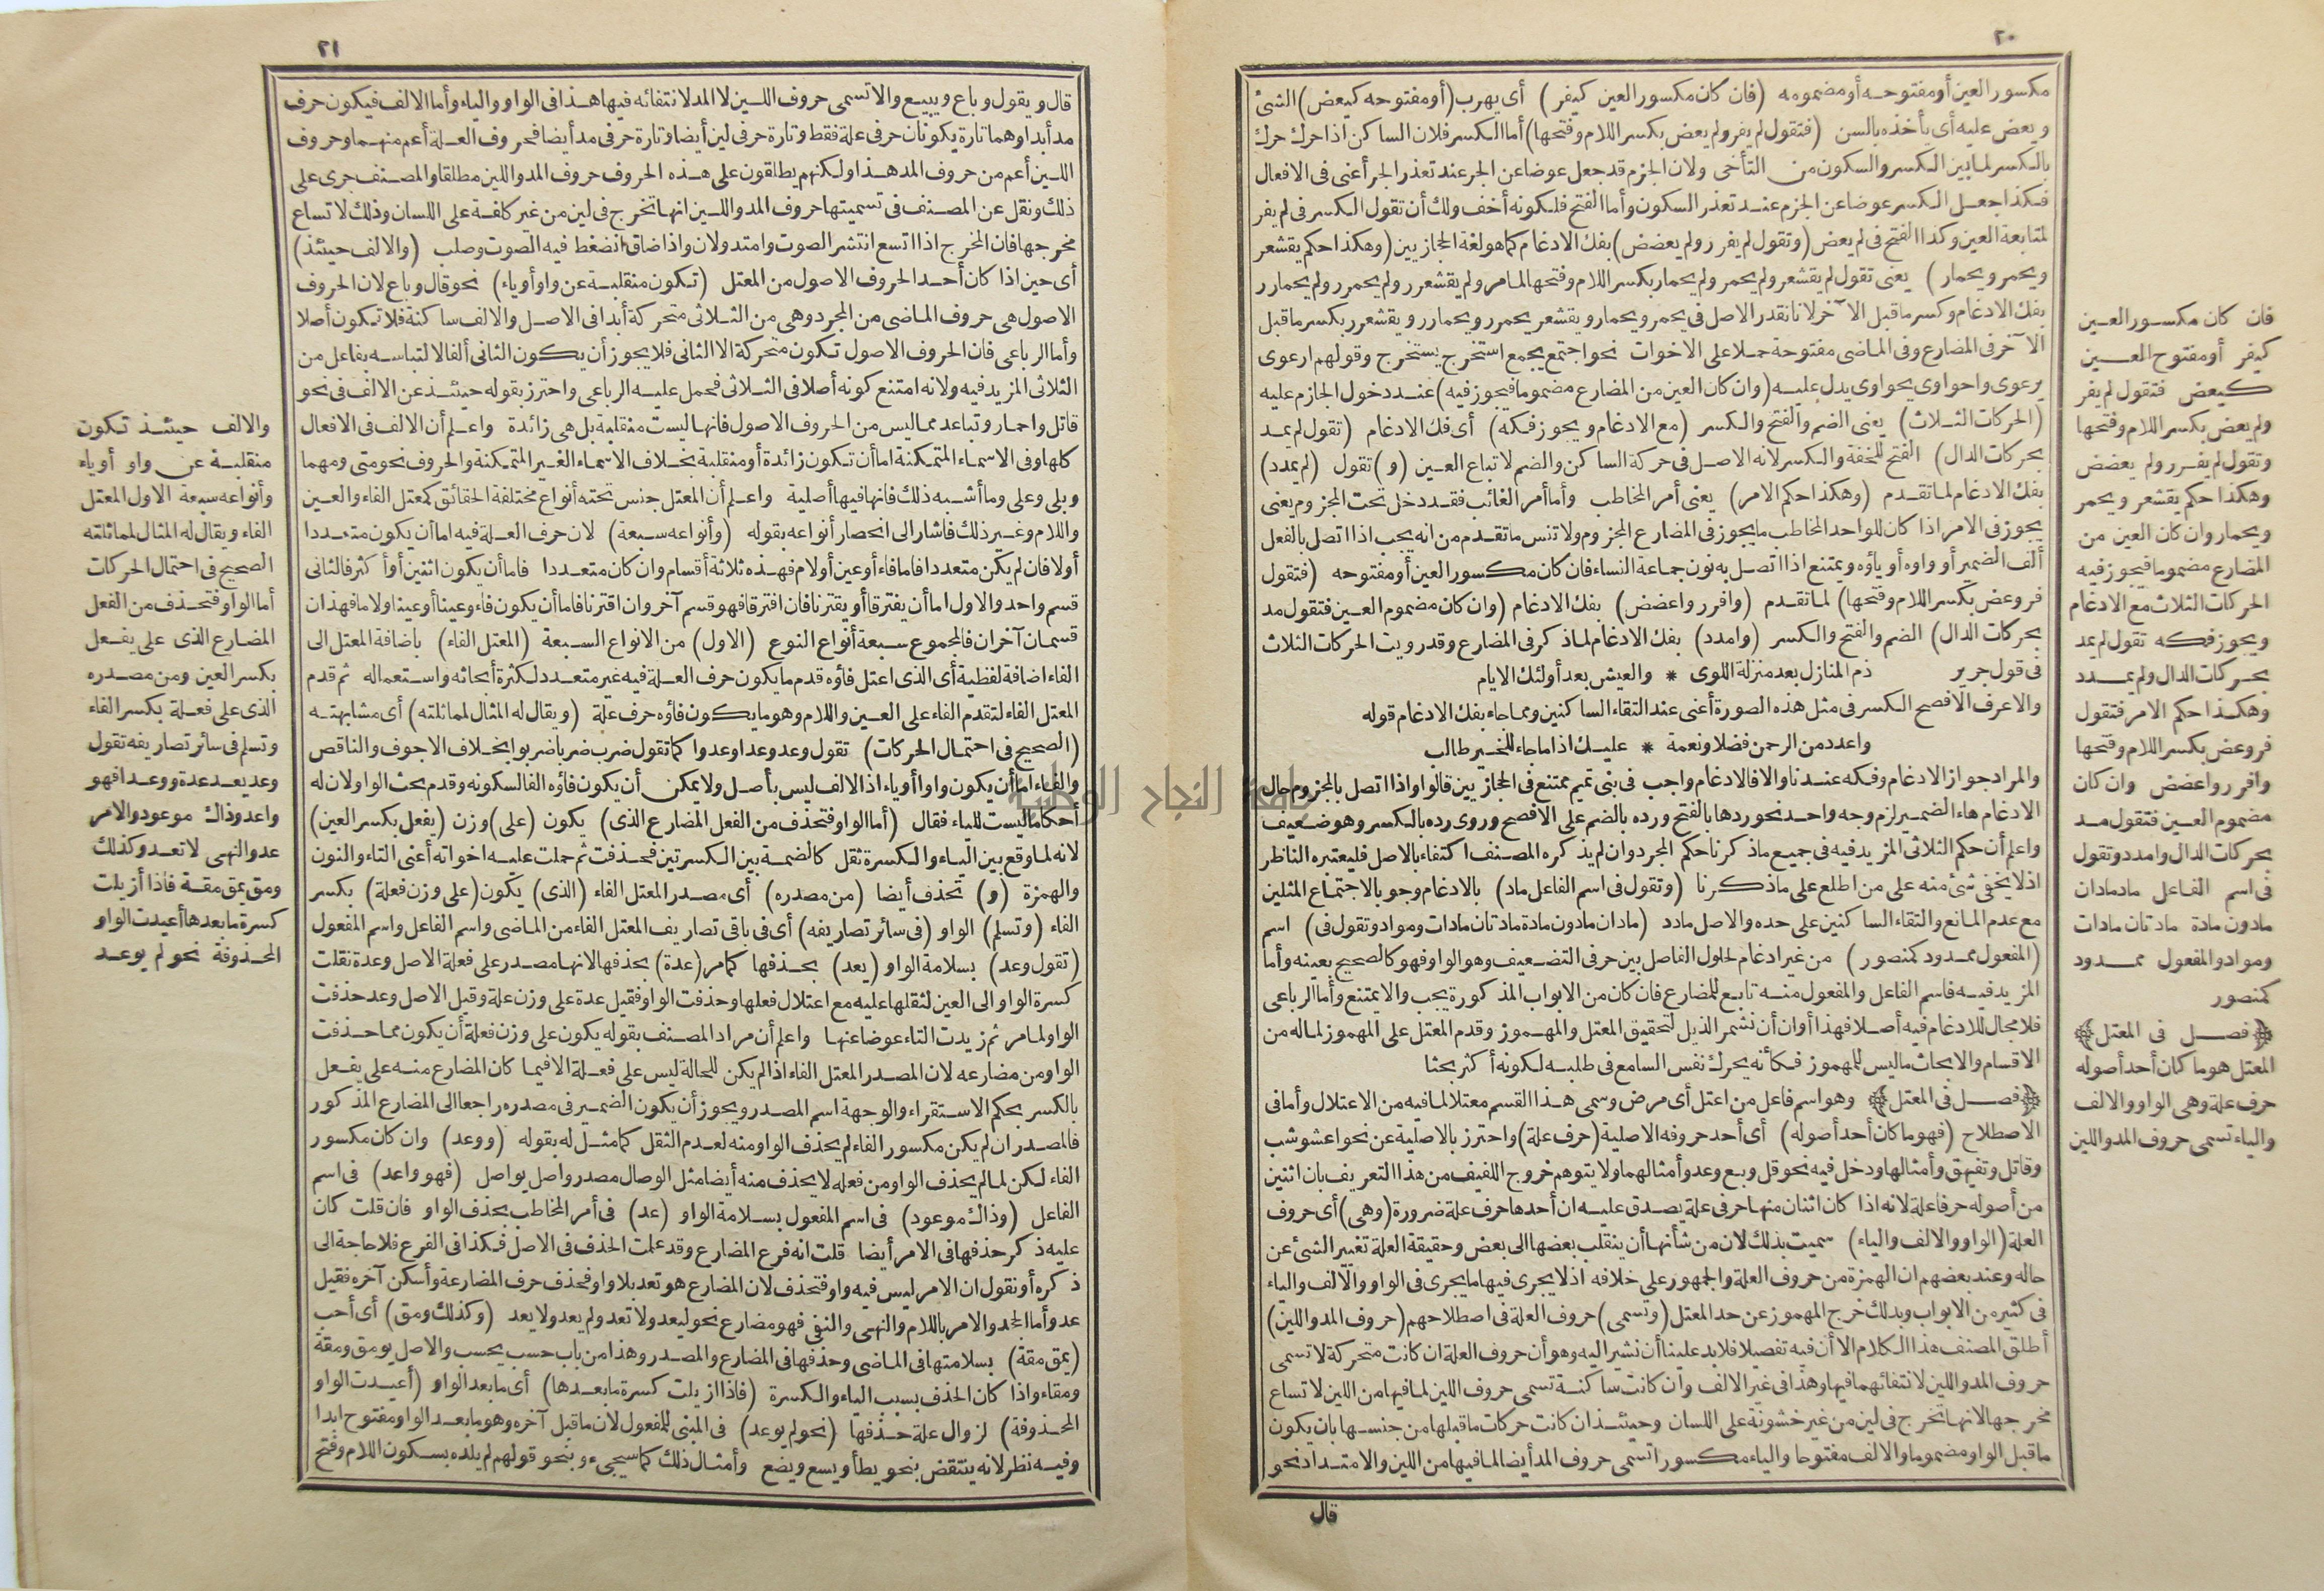 ٢٠
مكسور العين أو مفتوحه أو مضمومه (فان كان مكسور العين كيفر) أى يهرب (أو مفتوحه كيعض) الشئ
ويعض عليه أى يأخذه بالسن (فتقول لم يفر ولم يعض بكسر اللام وفتحها) أما الكسر فلان الساكن اذا حرك حرك
بالكسر لما بين الكسر والسكون من التأخى ولان الجزم قد جعل عوضا عن الجر عند تعذر الجر أعنى فى الافعال
فكذا جعل الكسر عوضا عن الجزم عند تعذر السكون وأما الفتح فلكونه أخف ولك أن تقول الكسر فى لم يفر
لمتابعة العين وكذا الفتح فى لم يعض (وتقول لم يفرر ولم يعضض) بفك الادغام كما هو لغة الحجازيين (وهكذا حكم يقشعر
ويحمر ويحمار) يعنى تقول لم يقشعر ولم يحمر ولم يحمار بكسر اللام وفتحها لما مر ولم يقشعرر ولم يحمرر ولم يحمارر
بفك الادغام وكسر ما قبل الآخر لانا نقدر الاصل فى يحمر ويحمار ويقشعر يحمرر ويحمارر ويقشعرر بكسر ما قبل
الآخر فى المضارع وفى الماضى مفتوحة حملا على الاخوات نحو اجتمع يجمع استخرج يستخرج وقولهم ارعوى
يرعوى واحواوى يحواوى يدل عليه (وان كان العين من المضارع مضموما فيجوز فيه) عند دخول الجازم عليه
(الحركات الثلاث) يعنى الضم والفتح والكسر (مع الادغام ويجوز فكه) أى فك الادغام (تقول لم يمد
بحركات الدال) الفتح للخفة والكسر لانه الاصل فى حركة الساكن والضم لاتباع العين (و) تقول (لم يمدد)
بفك الادغام لما تقدم (وهكذا حكم الامر) يعنى أمر المخاطب وأما أمر الغائب فقد دخل تحت المجزوم يعنى
يجوز فى الامر اذا كان للواحد المخاطب ما يجوز فى المضارع المجزوم ولا تنس ما تقدم من انه يجب اذا اتصل بالفعل
ألف الضمير أو واوه أو ياؤه ويمتنع اذا اتصل به نون جماعة النساء فان كان مكسور العين أو مفتوحه (فتقول
فر وعض بكسر اللام وفتحها) لما تقدم (وافرر واعضض) بفك الادغام (وان كان مضموم العين فتقول مد
بحركات الدال) الضم والفتح والكسر (وامدد) بفك الادغام لما ذكر فى المضارع وقد رويت الحركات الثلاث
فى قول جرير ذم المنازل بعد منزلة اللوى * والعيش بعد أولئك الايام
والاعرف الافصح الكسر فى مثل هذه الصورة أعنى عند التقاء الساكنين ومما جاء بفك الادغام قوله
واعدد من الرحمن فضلا ونعمة * عليك اذا ما جاء للخير طالب
والمراد جواز الادغام وفكه عندنا والا فالادغام واجب فى بنى تميم ممتنع فى الحجازيين قالوا واذا اتصل بالمجزوم حال
الادغام هاء الضمير لزم وجه واحد نحو ردها بالفتح ورده بالضم على الافصح وروى رده بالكسر وهو ضعيف
واعلم أن حكم الثلاثى المزيد فيه فى جميع ما ذكرنا حكم المجرد وان لم يذكره المصنف اكتفاء بالاصل فليعتبره الناظر
اذ لا يخفى شئ منه على من اطلع على ما ذكرنا (وتقول فى اسم الفاعل ماد) بالادغام وجوبا لاجتماع المثلين
مع عدم المانع والتقاء الساكنين على حده والاصل مادد (مادان مادون مادة مادتان مادات ومواد وتقول فى) اسم
(المفعول ممدود كمنصور) من غير ادغام لحلول الفاصل بين حرفى التضعيف وهو الواو فهو كالصحيح بعينه وأما
المزيد فيه فاسم الفاعل والمفعول منه تابع للمضارع فان كان من الابواب المذكورة يجب والا يمتنع وأما الرباعى
فلا مجال للادغام فيه أصلا فهذا أوان أن نشمر الذيل لتحقيق المعتل والمهموز وقدم المعتل على المهموز لما له من
الاقسام والابحاث ما ليس للمهموز فكأنه يحرك نفس السامع فى طلبه لكونه أكثر بحثا
﴿فصل فى المعتل﴾ وهو اسم فاعل من اعتل أى مرض وسمى هذا القسم معتلا لما فيه من الاعتلال وأما فى
الاصطلاح (فهو ما كان أحد أصوله) أى أحد حروفه الاصلية (حرف علة) واحترز بالاصلية عن نحو اعشوشب
وقاتل وتفيهق وأمثالها ودخل فيه نحو قل وبع وعد وأمثالهما ولا يتوهم خروج اللفيف من هذا التعريف بان اثنين
من أصوله حرفا علة لانه اذا كان اثنان منها حرفى علة يصدق عليه ان أحدها حرف علة ضرورة (وهى) أى حروف
العلة (الواو والالف والياء) سميت بذلك لان من شأنها أن ينقلب بعضها الى بعض وحقيقة العلة تغيير الشئ عن
حاله وعند بعضهم ان الهمزة من حروف العلة والجمهور على خلافه اذ لا يجرى فيها ما يجرى فى الواو والالف والياء
فى كثير من الابواب وبذلك خرج المهموز عن حد المعتل (وتسمى) حروف العلة فى اصطلاحهم (حروف المد واللين)
أطلق المصنف هذا الكلام الا أن فيه تفصيلا فلا بد علينا أن نشير اليه وهو أن حروف العلة ان كانت متحركة لا تسمى
حروف المد واللين لانتفائهما فيها وهذا فى غير الالف وان كانت ساكنة تسمى حروف اللين لما فيها من اللين لاتساع
مخرجها لانها تخرج فى لين من غير خشونة على اللسان وحينئذ ان كانت حركات ما قبلها من جنسها بان يكون
ما قبل الواو مضموما والالف مفتوحا والياء مكسورا تسمى حروف المد أيضا لما فيها من اللين والامتداد نحو
قال
فان كان مكسور العين
كيفر أو مفتوح العين
كيعض فتقول لم يفر
ولم يعض بكسر اللام وفتحها
وتقول لم يفرر ولم يعضض
وهكذا حكم يقشعر ويحمر
ويحمار وان كان العين من
المضارع مضموما فيجوز فيه
الحركات الثلاث مع الادغام
ويجوز فكه تقول لم يمد
بحركات الدال ولم يمدد
وهكذا حكم الامر فتقول
فر وعض بكسر اللام وفتحها
وافرر واعضض وان كان
مضموم العين فتقول مد
بحركات الدال وامدد وتقول
فى اسم الفاعل ماد مادان
مادون مادة مادتان مادات
ومواد والمفعول ممدود
كمنصور
﴿فصل فى المعتل﴾
المعتل هو ما كان أحد أصوله
حرف علة وهى الواو والالف
والياء تسمى حروف المد واللين
٢١
قال ويقول وباع ويبيع والا تسمى حروف اللين لا المد لانتفائه فيها هذا فى الواو والياء وأما الالف فيكون حرف
مد أبدا وهما تارة يكونان حرفى علة فقط وتارة حرفى لين أيضا وتارة حرفى مد أيضا فحروف العلة أعم منهما وحروف
اللين أعم من حروف المد هذا ولكنهم يطلقون على هذه الحروف حروف المد واللين مطلقا والمصنف جرى على
ذلك ونقل عن المصنف فى تسميتها حروف المد واللين انها تخرج فى لين من غير كلفة على اللسان وذلك لاتساع
مخرجها فان المخرج اذا اتسع انتشر الصوت وامتد ولان واذا ضاق انضغط فيه الصوت وصلب (والالف حينئذ)
أى حين اذا كان أحد الحروف الاصول من المعتل (تكون منقلبة عن واو أو ياء) نحو قال وباع لان الحروف
الاصول هى حروف الماضى من المجرد وهى من الثلاثى متحركة أبدا فى الاصل والالف ساكنة فلا تكون أصلا
وأما الرباعى فان الحروف الاصول تكون متحركة الا الثانى فلا يجوز أن يكون الثانى ألفا لالتباسه بفاعل من
الثلاثى المزيد فيه ولانه امتنع كونه أصلا فى الثلاثى فحمل عليه الرباعى واحترز بقوله حينئذ عن الالف فى نحو
قاتل واحمار وتباعد مما ليس من الحروف الاصول فانها ليست منقلبة بل هى زائدة واعلم أن الالف فى الافعال
كلها وفى الاسماء المتمكنة اما أن تكون زائدة أو منقلبة بخلاف الاسماء الغير المتمكنة والحروف نحو متى ومهما
وبلى وعلى وما أشبه ذلك فانها فيها أصلية واعلم أن المعتل جنس تحته أنواع مختلفة الحقائق كمعتل الفاء والعين
واللام وغير ذلك فاشار الى انحصار أنواعه بقوله (وأنواعه سبعة) لان حرف العلة فيه اما أن يكون متعددا
أو لا فان لم يكن متعددا فاما فاء أو عين أو لام فهذه ثلاثة أقسام وان كان متعددا فاما أن يكون اثنين أو أكثر فالثانى
قسم واحد والاول اما أن يفترقا أو يقترنا فان افترقا فهو قسم آخر وان اقترنا فاما أن يكون فاء وعينا أو عينا ولاما فهذان
قسمان آخران فالمجموع سبعة أنواع النوع (الاول) من الانواع السبعة (المعتل الفاء) باضافة المعتل الى
الفاء اضافة لفظية أى الذى اعتل فاؤه قدم ما يكون حرف العلة فيه غير متعدد لكثرة أبحاثه واستعماله ثم قدم
المعتل الفاء لتقدم الفاء على العين واللام وهو ما يكون فاؤه حرف علة (ويقال له المثال لمماثلته) أى مشابهته
(الصحيح فى احتمال الحركات) تقول وعد وعدا وعدوا كما تقول ضرب ضربا ضربوا بخلاف الاجوف والناقص
والفاء اما أن يكون واوا أو ياء اذ الالف ليس بأصل ولا يمكن أن يكون فاؤه الفا لسكونه وقدم بحث الواو لان له
أحكاما ليست للياء فقال (أما الواو فتحذف من الفعل المضارع الذى) يكون (على) وزن (يفعل بكسر العين)
لانه لما وقع بين الياء والكسرة ثقل كالضمة بين الكسرتين فحذفت ثم حملت عليه اخواته أعنى التاء والنون
والهمزة (و) تحذف أيضا (من مصدره) أى مصدر المعتل الفاء (الذى) يكون (على وزن فعلة) بكسر
الفاء (وتسلم) الواو (فى سائر تصاريفه) أى فى باقى تصاريف المعتل الفاء من الماضى واسم الفاعل واسم المفعول
(تقول وعد) بسلامة الواو (يعد) بحذفها كما مر (عدة) بحذفها لانها مصدر على فعلة الاصل وعدة نقلت
كسرة الواو الى العين لثقلها عليه مع اعتلال فعلها وحذفت الواو فقيل عدة على وزن علة وقيل الاصل وعد حذفت
الواو لما مر ثم زيدت التاء عوضا عنها واعلم أن مراد المصنف بقوله يكون على وزن فعلة أن يكون مما حذفت
الواو من مضارعه لان المصدر المعتل الفاء اذا لم يكن للحالة ليس على فعلة الا فيما كان المضارع منه على يفعل
بالكسر بحكم الاستقراء والوجهة اسم المصدر ويجوز أن يكون الضمير فى مصدره راجعا الى المضارع المذكور
فالمصدر ان لم يكن مكسور الفاء لم يحذف الواو منه لعدم الثقل كما مثل له بقوله (ووعد) وان كان مكسور
الفاء لكن لما لم يحذف الواو من فعله لا يحذف منه أيضا مثل الوصال مصدر واصل يواصل (فهو واعد) فى اسم
الفاعل (وذاك موعود) فى اسم المفعول بسلامة الواو (عد) فى أمر المخاطب بحذف الواو فان قلت كان
عليه ذكر حذفها فى الامر أيضا قلت انه فرع المضارع وقد علمت الحذف فى الاصل فكذا فى الفرع فلا حاجة الى
ذكره أو نقول ان الامر ليس فيه واو فتحذف لان المضارع هو تعد بلا واو فحذف حرف المضارعة وأسكن آخره فقيل
عد وأما الجحد والامر باللام والنهى والنفى فهو مضارع نحو ليعد ولا تعد ولم يعد ولا يعد (وكذلك ومق) أى أحب
(يمق مقة) بسلامتها فى الماضى وحذفها فى المضارع والمصدر وهذا من باب حسب يحسب والاصل يومق ومقة
ومقاء واذا كان الحذف بسبب الياء والكسرة (فاذا ازيلت كسرة ما بعدها) أى ما بعد الواو (أعيدت الواو
المحذوفة) لزوال علة حذفها (نحو لم يوعد) فى المبنى للمفعول لان ما قبل آخره وهو ما بعد الواو مفتوح ابدا
وفيه نظر لانه ينتقض بنحو يطأ ويسع ويضع وأمثال ذلك كما سيجىء وبنحو قولهم لم يلده بسكون اللام وفتح
والالف حينئذ تكون
منقلبة عن واو أو ياء
وأنواعه سبعة الاول المعتل
الفاء ويقال له المثال لمماثلته
الصحيح فى احتمال الحركات
أما الواو فتحذف من الفعل
المضارع الذى على يفعل
بكسر العين ومن مصدره
الذى على فعلة بكسر الفاء
وتسلم فى سائر تصاريفه تقول
وعد يعد عدة ووعدا فهو
واعد وذاك موعود والامر
عد والنهى لا تعد وكذلك
ومق يمق مقة فاذا أزيلت
كسرة ما بعدها أعيدت الواو
المحذوفة نحو لم يوعد
جامعة النجاح الوطنية